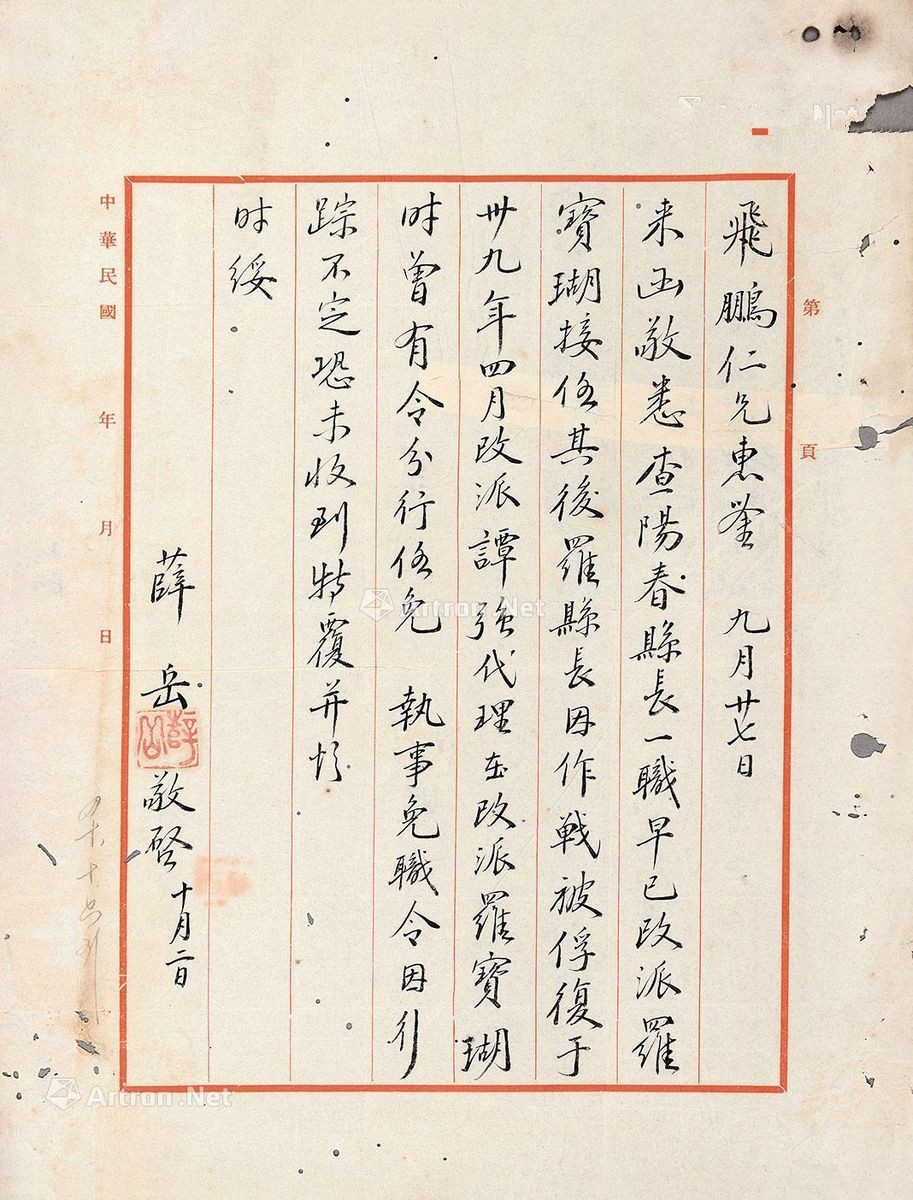 第 頁
飛鵬仁兄惠鑒 九月廿七日
来函敬悉查陽春縣長一職早已改派羅
寶瑚接任其後羅縣長因作戦被俘復于
卅九年四月改派譚強代理在改派羅寶瑚
时曾有令分行任免 執事免職令因行
踪不定恐未收到特覆并頌
时綏
薛岳 敬啓 十月二日
薛岳
中華民國 年 月 日
Artron.Net
Artron.Net